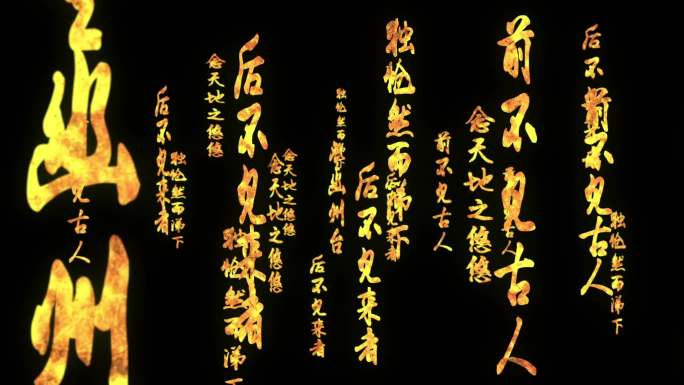 幽州
见古人
后不见来者
独怆然而涕下
念天地之悠悠
后不见来者
独怆然而涕下
念天地之悠悠
念天地之悠悠
后不见来者
独怆然而
幽州台
后不见来者
独怆然而涕下
前不见古人
念天地之悠悠
前不见古人
后不
前不见古人
独怆然而涕下